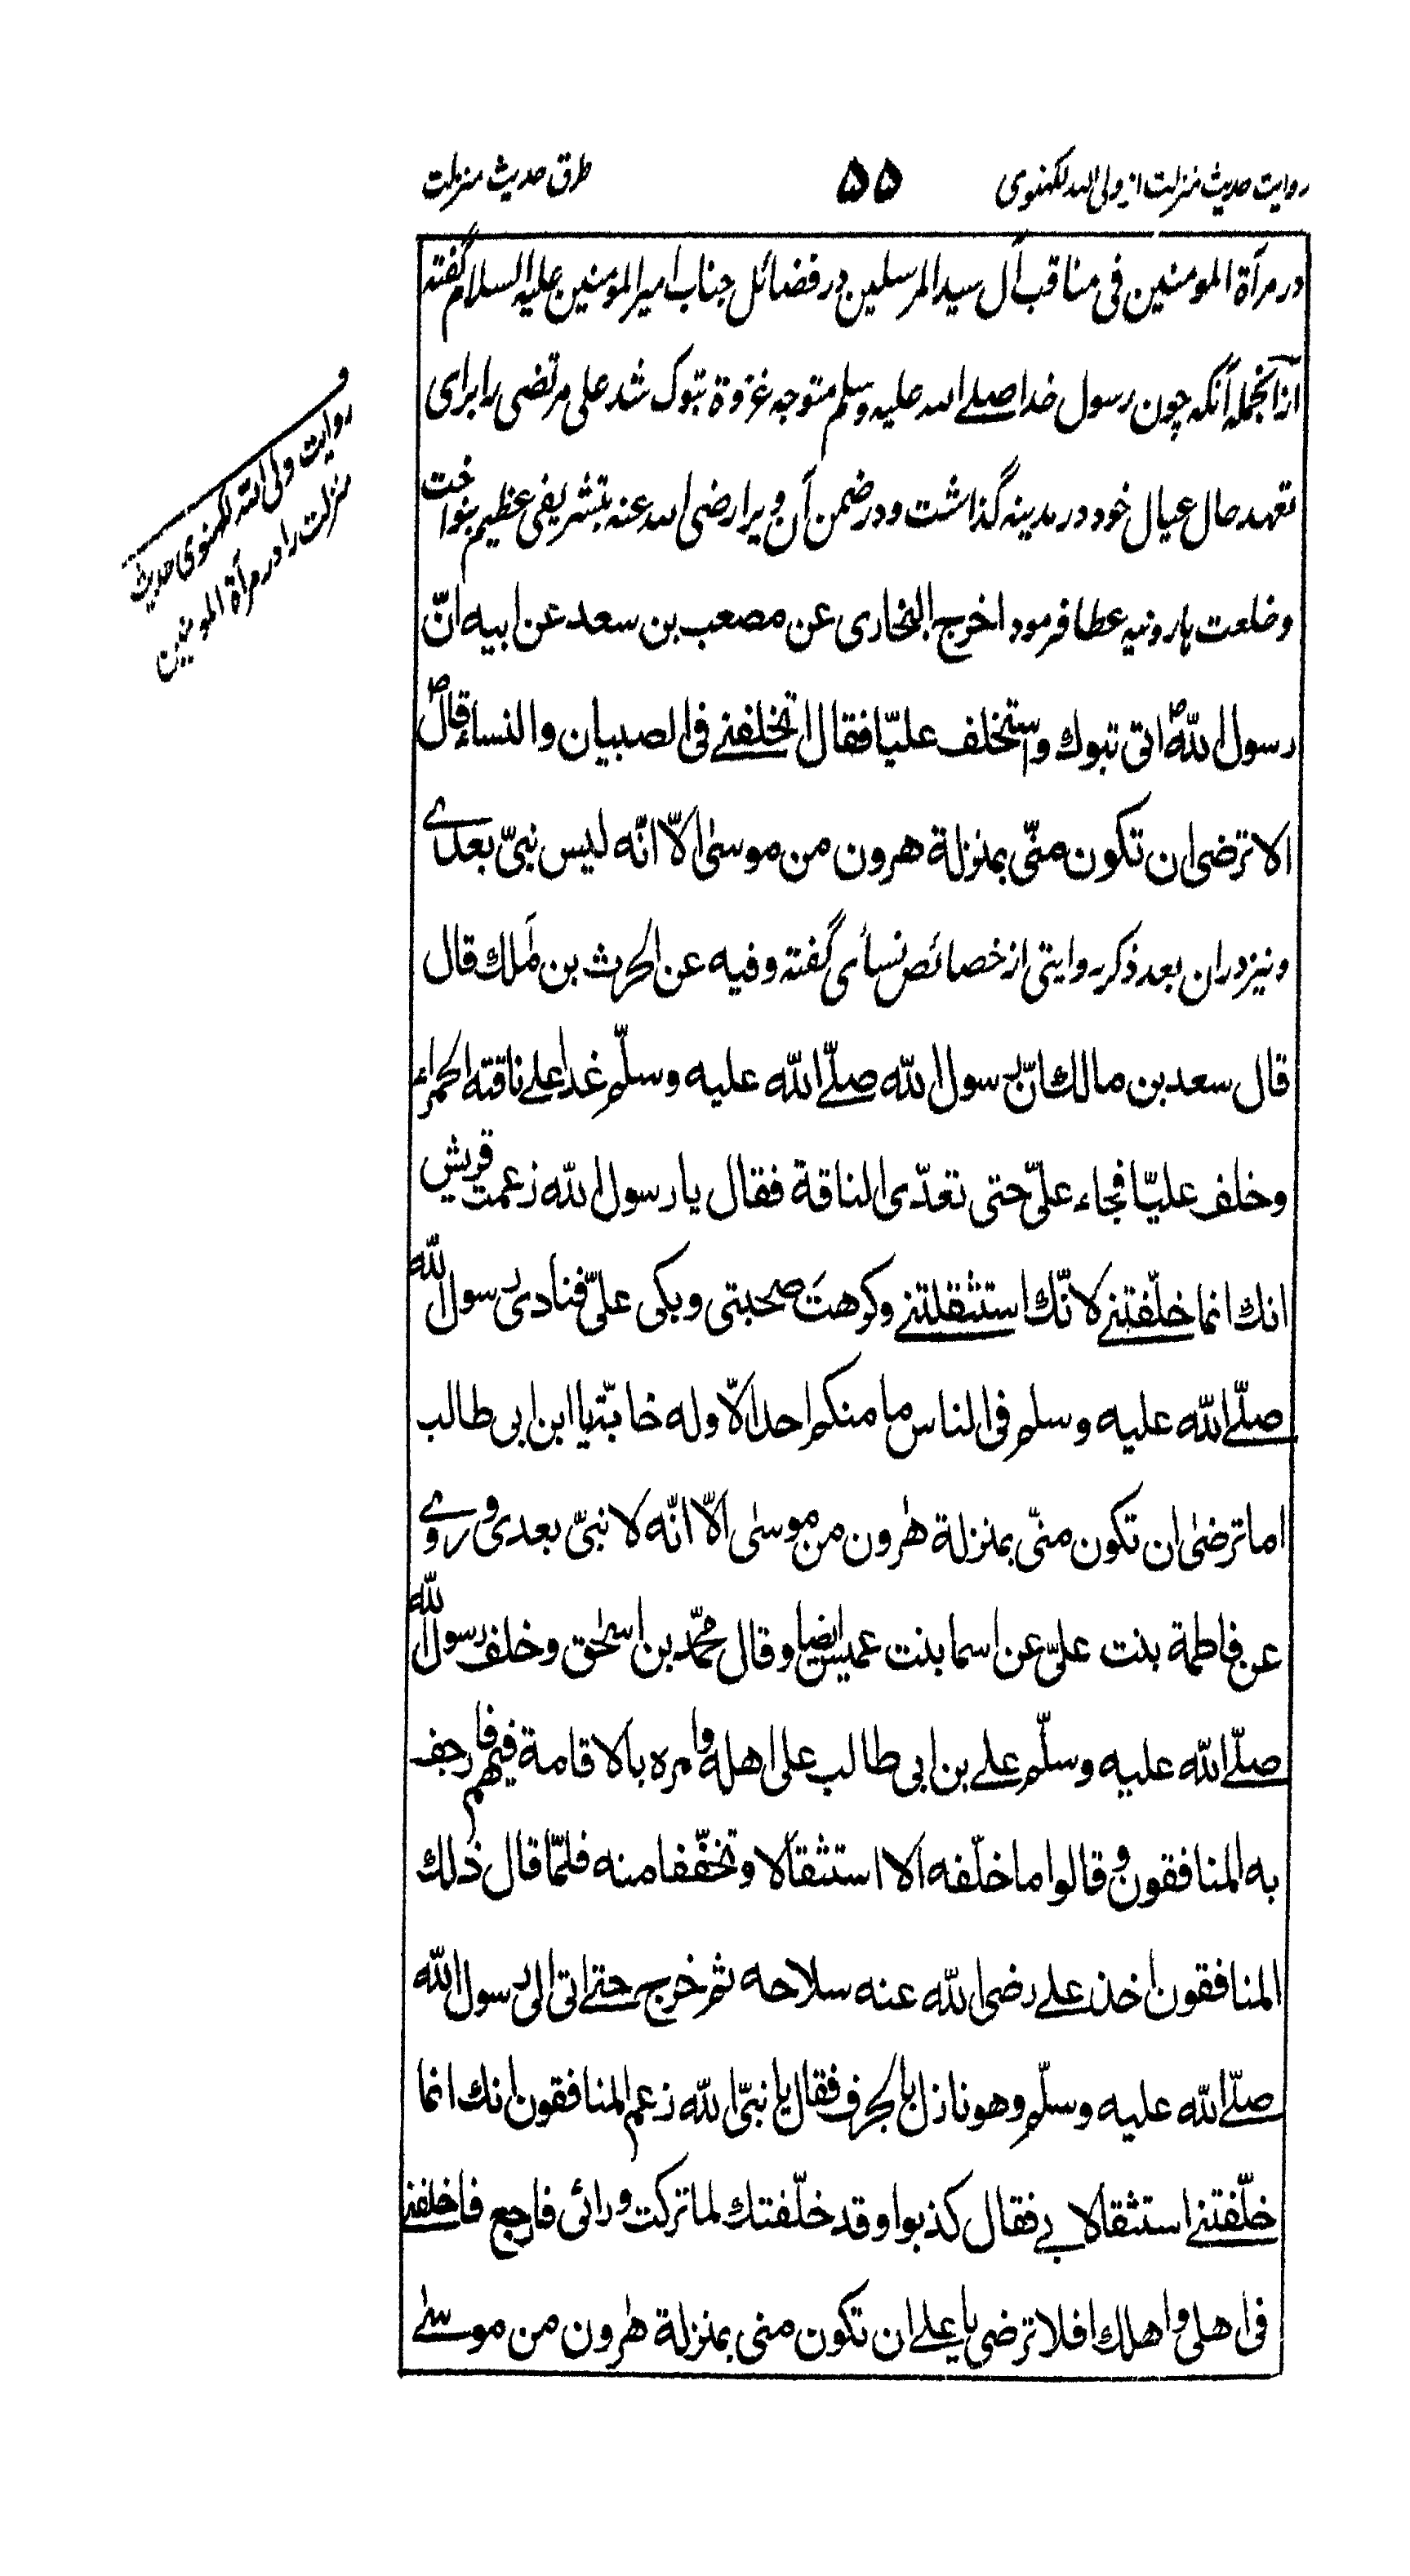 روایت حدیث منزلت از ولی الله لکهنوی
۵۵
طرق حدیث منزلت
در مرآة المومنین فی مناقب آل سید المرسلین در فضائل جناب امیر المومنین علیه السلام گفته
ازانجمله آنکه چون رسول خدا صلے الله علیه وسلم متوجه غزوة تبوک شد علی مرتضی را برای
تعهد حال عیال خود در مدینه گذاشت و در ضمن آن ویرا رضی الله عنه بتشریفی عظیم بنواخت
و خلعت هارونیه عطا فرمود اخرج البخاری عن مصعب بن سعد عن ابیه انّ
رسول اللّه ص اتی تبوك واستخلف علیّا فقال اتخلفنے فی الصبیان والنساء قال ص
الا ترضی ان تكون منّی بمنزلة هرون من موسیٰ الّا انّه لیس نبیّ بعدے
و نیز دران بعد ذکر روایتی از خصائص نسائی گفته و فیه عن الحرث بن مٰلك قال
قال سعد بن مالك انّ رسول اللّه صلّے اللّه علیه وسلّم غدا علے ناقته الحمراء
وخلف علیّا فجاء علیّ حتی تعدّی الناقة فقال یا رسول اللّه زعمت قریش
انك انما خلّفتنے لانّك استثقلتنے وكرهتَ صحبتی وبكی علیّ فنادی رسول اللّه
صلّے اللّه علیه وسلم فی الناس ما منكم احد الّا وله خابّة یا ابن ابی طالب
اما ترضیٰ ان تكون منّی بمنزلة هٰرون من موسیٰ الّا انّه لا نبیّ بعدی وروے
عن فاطمة بنت علیّ عن اسما بنت عمیس ایضا وقال محمّد بن اسحٰق وخلف رسول اللّه
صلّے اللّه علیه وسلّم علے بن ابی طالب علی اهله وامره بالاقامة فیهم فارجف
به المنافقون وقالوا ما خلّفه الا استثقالا وتخفّفا منه فلمّا قال ذٰلك
المنافقون اخذ علے رضی اللّه عنه سلاحه ثم خرج حتے اتی الی رسول اللّه
صلّے اللّه علیه وسلّم وهو نازل بالجرف فقال یا نبیّ اللّه زعم المنافقون انك انما
خلّفتنے استثقالا بے فقال كذبوا وقد خلّفتك لما تركت ورائی فارجع فاخلفنے
فی اهلی واهلك افلا ترضی یا علے ان تكون منی بمنزلة هٰرون من موسےٰ
روایت ولی اللّه لکهنوی حدیث
منزلت را در مرآة المومنین